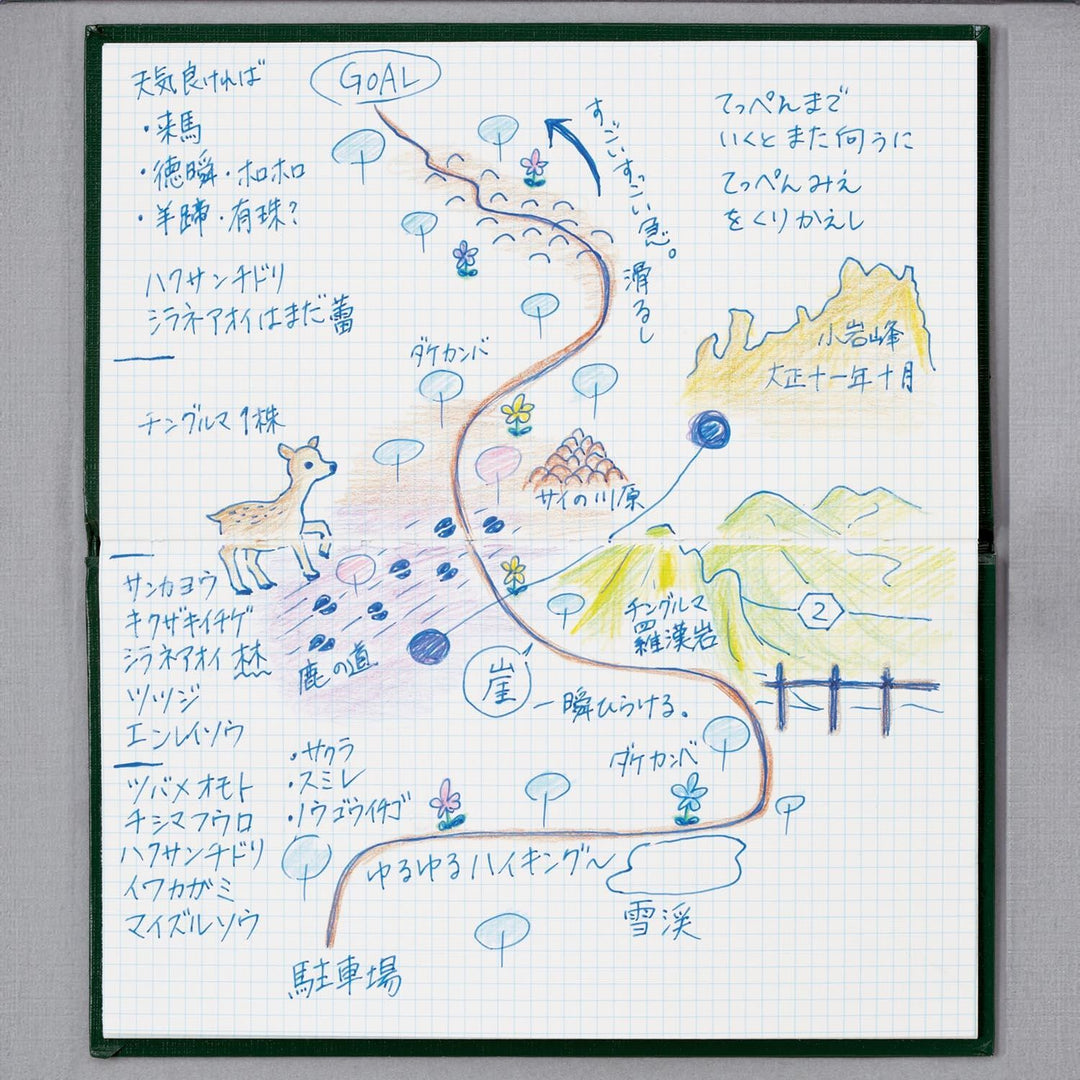 天気良ければ
・来馬
・徳瞬・ホロホロ
・羊蹄・有珠?
ハクサンチドリ
シラネアオイはまだ蕾
チングルマ1株
サンカヨウ
キクザキイチゲ
シラネアオイ
ツツジ
エンレイソウ
ツバメオモト
チシマフウロ
ハクサンチドリ
イワカガミ
マイズルソウ
GOAL
すごいすごい急。
滑るし
てっぺんまで
いくとまた向うに
てっぺんみえ
をくりかえし
小岩峰
大正十一年十月
ダケカンバ
サイの川原
チングルマ
四羅漢岩
2
鹿の道
崖
一瞬ひらける。
ダケカンバ
・サクラ
・スミレ
・ノウゴウイチゴ
ゆるゆるハイキング〜
雪渓
駐車場